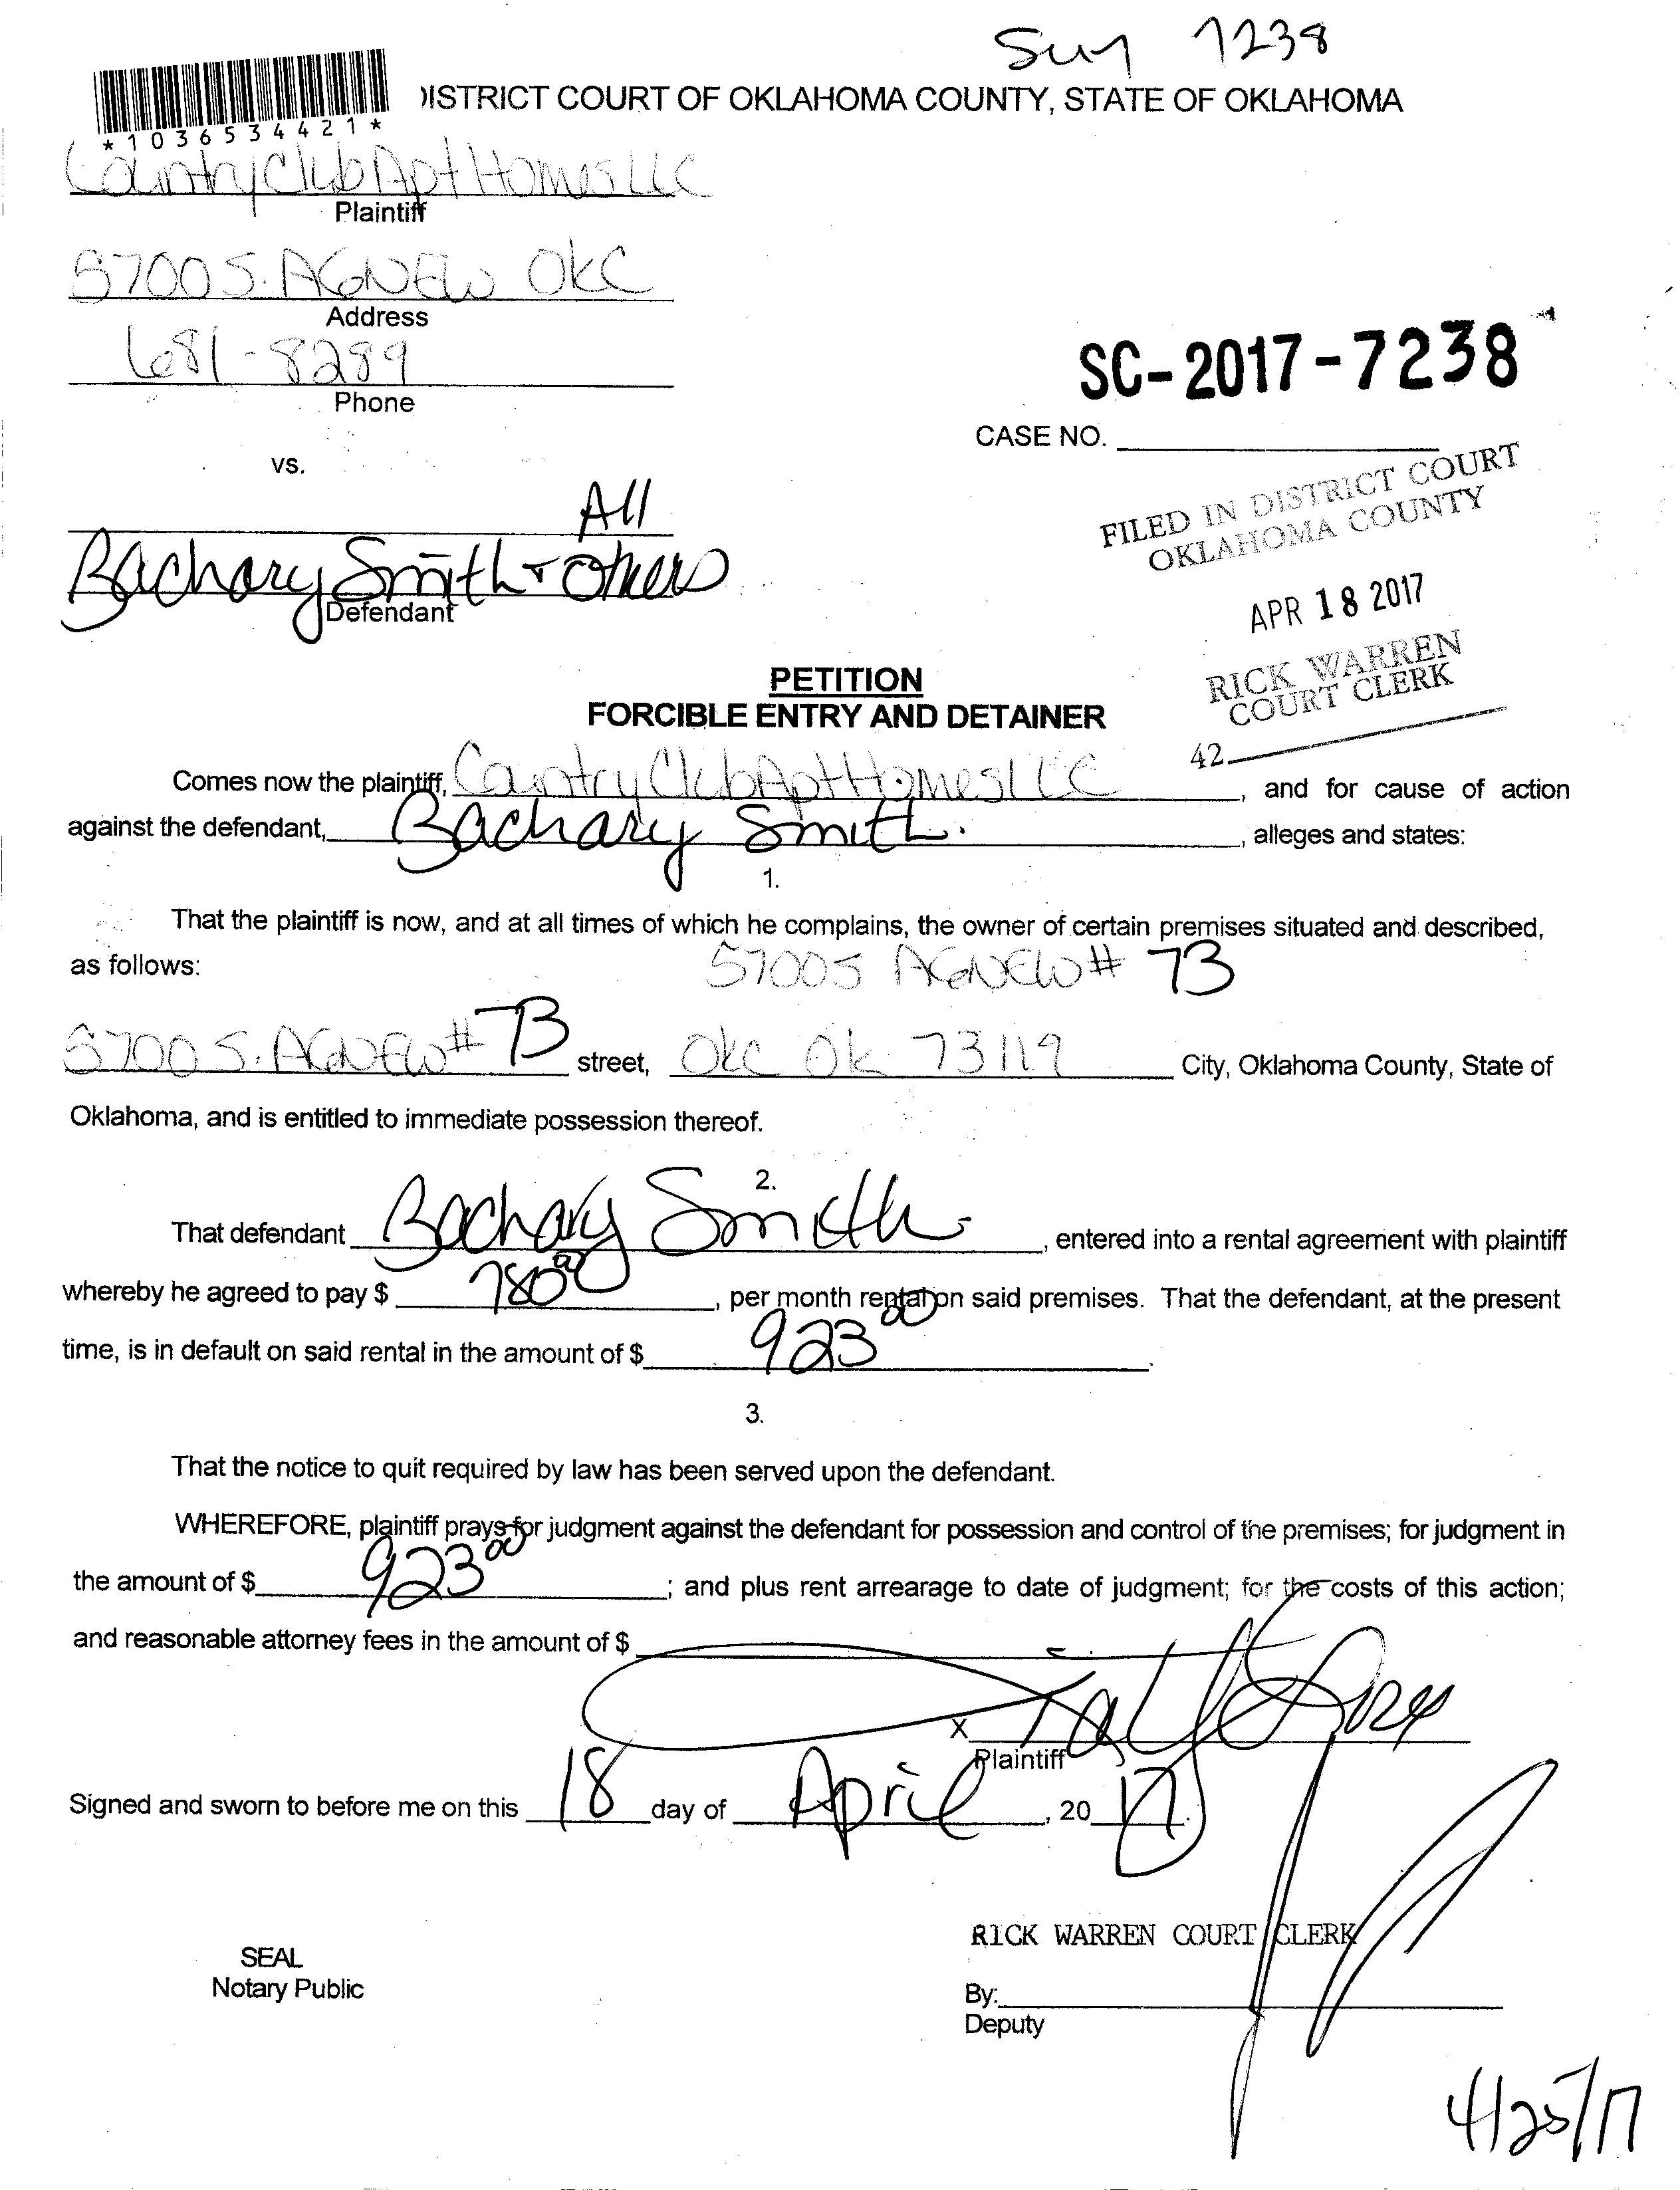 Suy 7238
*1036534421*
)ISTRICT COURT OF OKLAHOMA COUNTY, STATE OF OKLAHOMA
Country Club Apt Homes LLC
Plaintiff
5700 S. AGNEW OKC
Address
681-8289
Phone
SC-2017-7238
CASE NO.
vs.
FILED IN DISTRICT COURT
OKLAHOMA COUNTY
APR 18 2017
RICK WARREN
COURT CLERK
42
All
Zachary Smith + Others
Defendant
PETITION
FORCIBLE ENTRY AND DETAINER
Comes now the plaintiff, Country Club Apt Homes LLC, and for cause of action
against the defendant, Zachary Smith, alleges and states:
1.
That the plaintiff is now, and at all times of which he complains, the owner of certain premises situated and described,
as follows: 5700 S AGNEW # 73
5700 S. AGNEW # 73 street, OKC Ok 73119 City, Oklahoma County, State of
Oklahoma, and is entitled to immediate possession thereof.
2.
That defendant Zachary Smith, entered into a rental agreement with plaintiff
whereby he agreed to pay $ 780 00, per month rental on said premises. That the defendant, at the present
time, is in default on said rental in the amount of $ 923 00.
3.
That the notice to quit required by law has been served upon the defendant.
WHEREFORE, plaintiff prays for judgment against the defendant for possession and control of the premises; for judgment in
the amount of $ 923 00; and plus rent arrearage to date of judgment; for the costs of this action;
and reasonable attorney fees in the amount of $
X
Plaintiff
Signed and sworn to before me on this 18 day of April, 20 17.
RICK WARREN COURT CLERK
SEAL
Notary Public
By:
Deputy
4/25/17